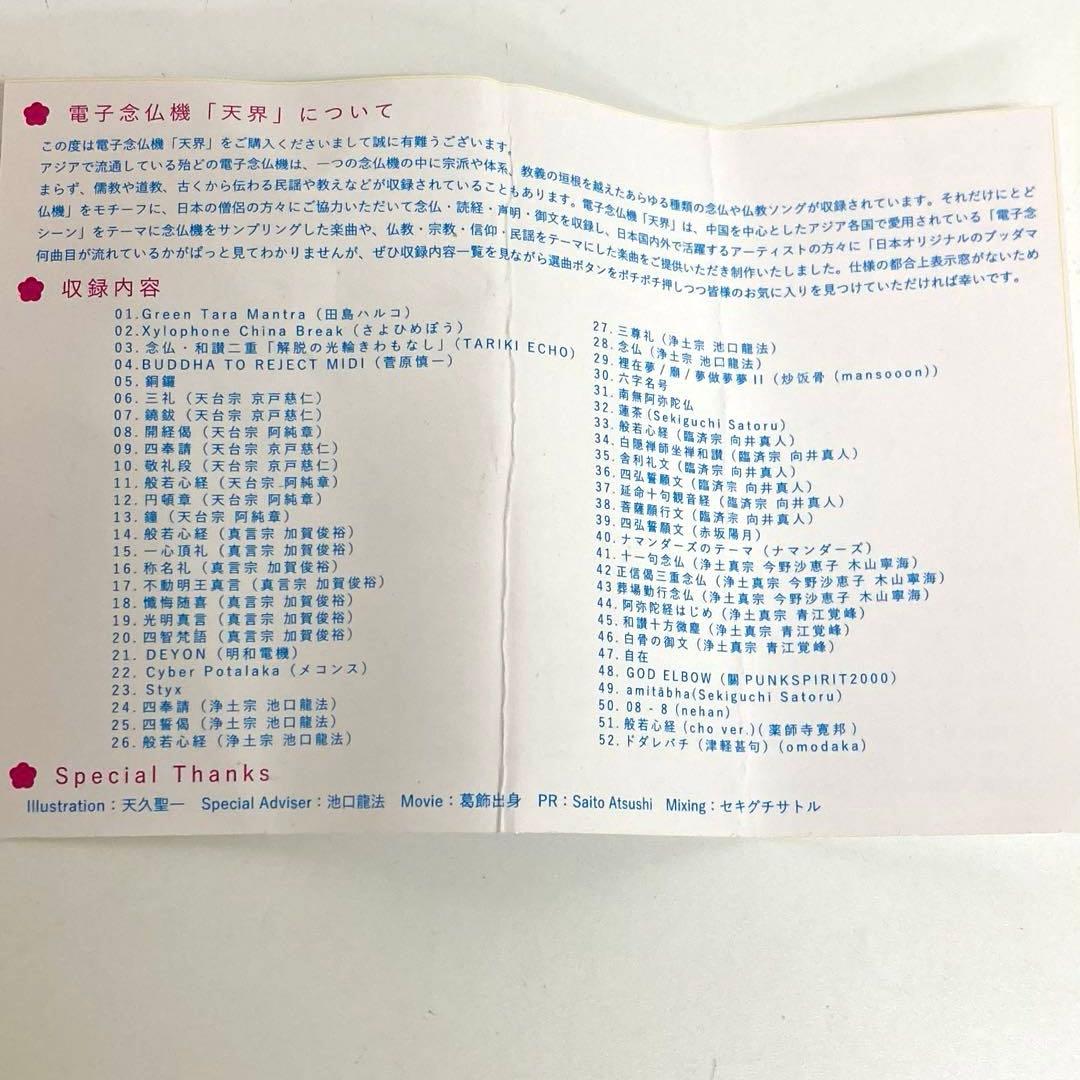 電子念仏機「天界」について
この度は電子念仏機「天界」をご購入くださいまして誠に有難うございます。
アジアで流通している殆どの電子念仏機は、一つの念仏機の中に宗派や体系、教義の垣根を越えたあらゆる種類の念仏や仏教ソングが収録されています。それだけにとど
まらず、儒教や道教、古くから伝わる民謡や教えなどが収録されていることもあります。電子念仏機「天界」は、中国を中心としたアジア各国で愛用されている「電子念
仏機」をモチーフに、日本の僧侶の方々にご協力いただいて念仏・読経・声明・御文を収録し、日本国内外で活躍するアーティストの方々に「日本オリジナルのブッダマ
シーン」をテーマに念仏機をサンプリングした楽曲や、仏教・宗教・信仰・民謡をテーマにした楽曲をご提供いただき制作いたしました。仕様の都合上表示窓がないため
何曲目が流れているかがぱっと見てわかりませんが、ぜひ収録内容一覧を見ながら選曲ボタンをポチポチ押しつつ皆様のお気に入りを見つけていただければ幸いです。
収録内容
01.Green Tara Mantra（田島ハルコ）
02.Xylophone China Break（さよひめぼう）
03. 念仏・和讃二重「解脱の光輪きわもなし」（TARIKI ECHO）
04.BUDDHA TO REJECT MIDI（菅原慎一）
05. 銅鑼
06. 三礼（天台宗 京戸慈仁）
07. 鐃鈸（天台宗 京戸慈仁）
08. 開経偈（天台宗 阿純章）
09. 四奉請（天台宗 京戸慈仁）
10. 敬礼段（天台宗 京戸慈仁）
11. 般若心経（天台宗 阿純章）
12. 円頓章（天台宗 阿純章）
13. 鐘（天台宗 阿純章）
14. 般若心経（真言宗 加賀俊裕）
15. 一心頂礼（真言宗 加賀俊裕）
16. 称名礼（真言宗 加賀俊裕）
17. 不動明王真言（真言宗 加賀俊裕）
18. 懺悔随喜（真言宗 加賀俊裕）
19. 光明真言（真言宗 加賀俊裕）
20. 四智梵語（真言宗 加賀俊裕）
21. DEYON（明和電機）
22. Cyber Potalaka（メコンス）
23. Styx
24. 四奉請（浄土宗 池口龍法）
25. 四誓偈（浄土宗 池口龍法）
26. 般若心経（浄土宗 池口龍法）
27. 三尊礼（浄土宗 池口龍法）
28. 念仏（浄土宗 池口龍法）
29. 裡在夢/廟/夢做夢夢II（炒饭骨（mansooon））
30. 六字名号
31. 南無阿弥陀仏
32. 蓮茶（Sekiguchi Satoru）
33. 般若心経（臨済宗 向井真人）
34. 白隠禅師坐禅和讃（臨済宗 向井真人）
35. 舎利礼文（臨済宗 向井真人）
36. 四弘誓願文（臨済宗 向井真人）
37. 延命十句観音経（臨済宗 向井真人）
38. 菩薩願行文（臨済宗 向井真人）
39. 四弘誓願文（赤坂陽月）
40. ナマンダーズのテーマ（ナマンダーズ）
41. 十一句念仏（浄土真宗 今野沙恵子 木山寧海）
42 正信偈三重念仏（浄土真宗 今野沙恵子 木山寧海）
43 葬場勤行念仏（浄土真宗 今野沙恵子 木山寧海）
44. 阿弥陀経はじめ（浄土真宗 青江覚峰）
45. 和讃十方微塵（浄土真宗 青江覚峰）
46. 白骨の御文（浄土真宗 青江覚峰）
47. 自在
48. GOD ELBOW（關PUNKSPIRIT2000）
49. amitābha(Sekiguchi Satoru)
50. 08 - 8 (nehan)
51. 般若心経 (cho ver.)( 薬師寺寛邦 )
52. ドダレバチ（津軽甚句）(omodaka)
Special Thanks
Illustration：天久聖一　Special Adviser：池口龍法　Movie：葛飾出身　PR：Saito Atsushi　Mixing：セキグチサトル